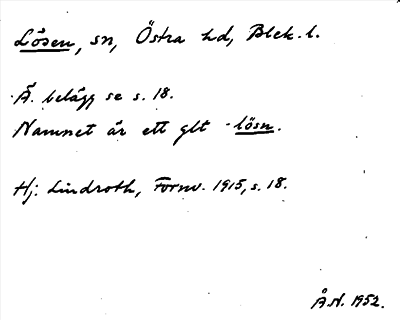 Lösen, sn, Östra hd, Blek. l.
Ä. belägg se s. 18.
Namnet är ett glt -lösn.
Hj. Lindroth, Fornv. 1915, s. 18.
Å.N. 1952.